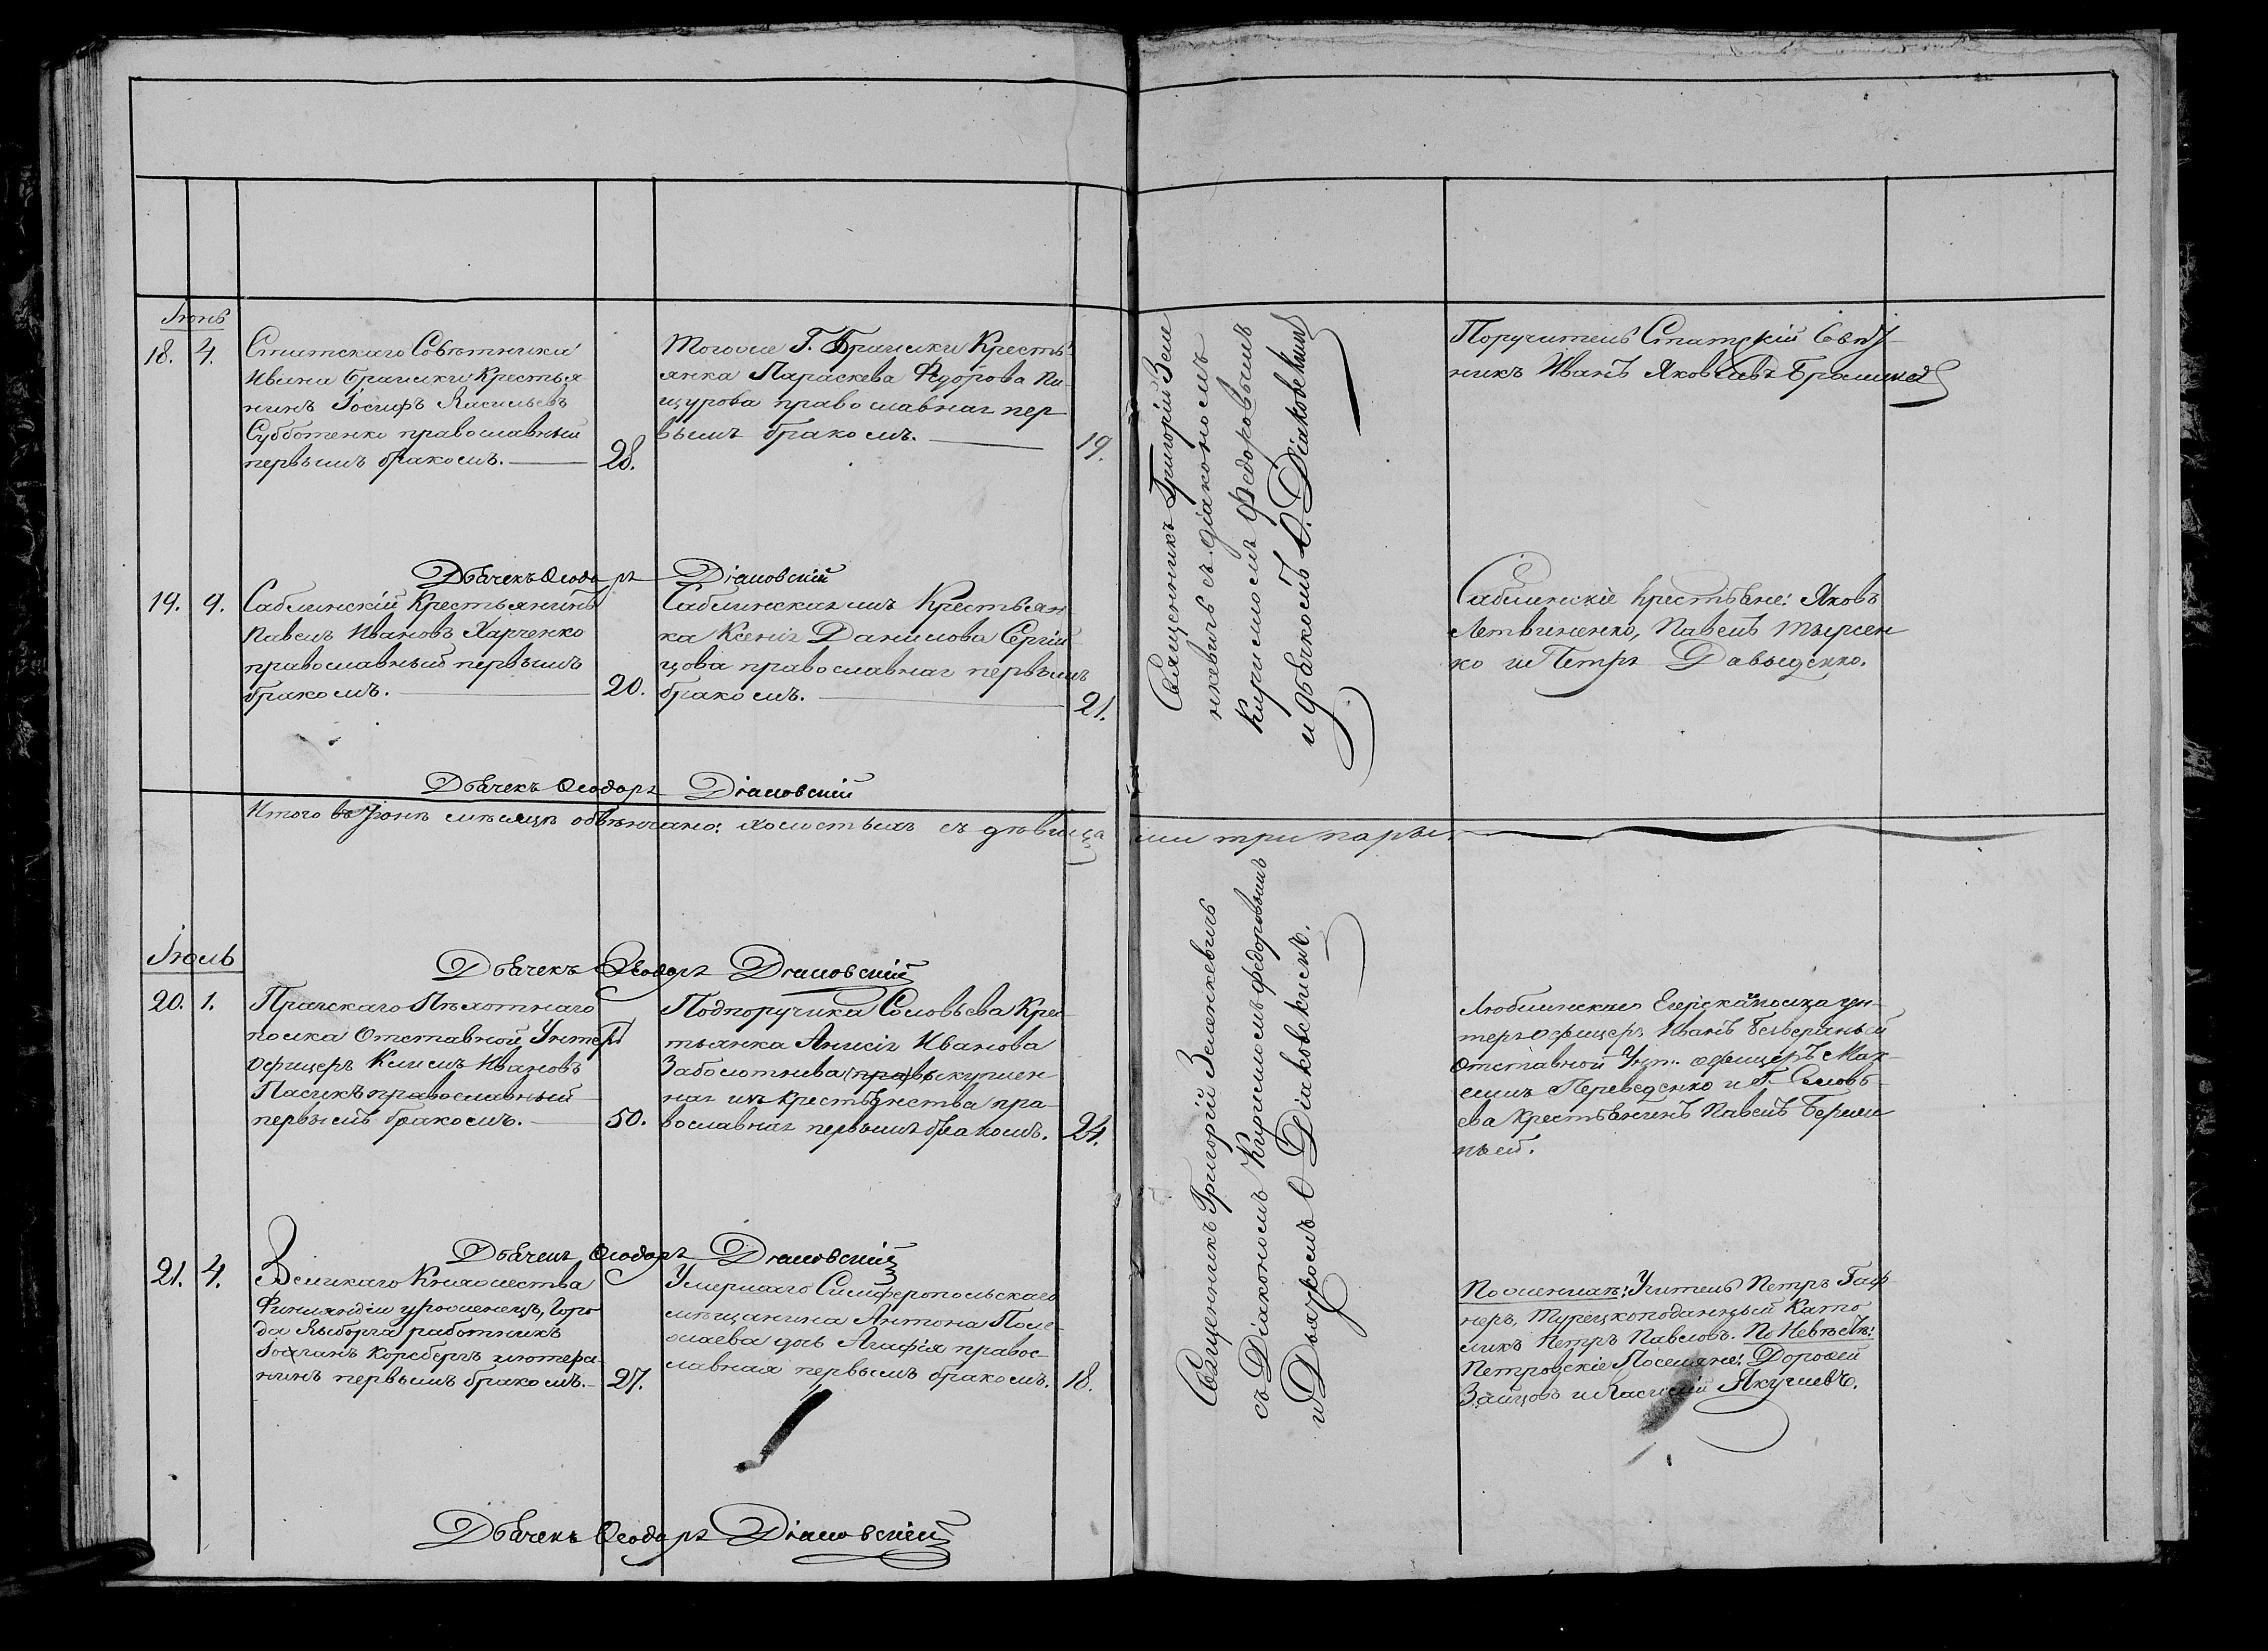 Іюнь
18. 4.
Статскаго Совѣтника
Ивана Брамжи Крестья
нинъ Іосифъ Васильевъ
Субботенко православный
первымъ бракомъ. 28.
Тогоже Г. Брамжи Кресть
янка Параскева Федорова
православная пер
вымъ бракомъ. 19.
Священникъ Григорій Зеле
нкевичъ съ діакономъ
Кириломъ Федоровымъ
и дьячкомъ Ѳ. Діаковскимъ
Поручитель Статскій Совѣт
никъ Иванъ Яковлевъ
Дьячекъ Ѳеодоръ Діаковскій
19. 9.
Саблинскій Крестьянинъ
Павелъ Ивановъ Харченко
православный первымъ
бракомъ. 20.
Саблинская жъ Крестьян
ка Ксенія Данилова Сергій
цова православная первымъ
бракомъ. 21.
Саблинскіе крестьяне: Яковъ
Летвиненко, Павелъ
ко и Петръ Давыденко.
Дьячекъ Ѳеодоръ Діаковскій
Итого въ Іюнѣ мѣсяцѣ обвѣнчано: холостыхъ съ дѣвица
ми три пары.
Іюль
Дьячекъ Ѳеодоръ Діаковскій
20. 1.
Прагскаго Пѣхотнаго
полка Отставной Унтеръ
офицеръ Климъ Ивановъ
Пасикъ православный
первымъ бракомъ. 50.
Подпоручика Соловьева Крес
тьянка Анисія Иванова
Заболотнева (право) выкуплен
ная изъ крестьянства пра
вославная первымъ бракомъ. 24.
Священникъ Григорій Зеленкевичъ
съ Діакономъ Кириломъ Федоровымъ
и Дьячкомъ Ѳ Діаковскимъ.
Люблинскаго Егерскаго полка ун
теръ офицеръ Иванъ
Отставной Унт. офицеръ Мак
симъ Переведенко и Г. Соловь
ева крестьянинъ Павелъ
Дьячекъ Ѳеодоръ Діаковскій
21. 4.
Великаго Княжества
Финляндіи уроженецъ, Горо
да Выборга работникъ
Іоганъ Корсбергъ лютера
нинъ первымъ бракомъ. 27.
Умершаго Симферопольскаго
мѣщанина Антона
дочь Агафія правос
лавная первымъ бракомъ. 18.
По женихѣ: Учитель Петръ Гаф
неръ, Турецкоподанный Като
ликъ Петръ Павловъ. По Невѣстѣ:
Петровскіе Поселяне: Дорофей
Зайцовъ и Василій Якушевъ.
Дьячекъ Ѳеодоръ Діаковскій